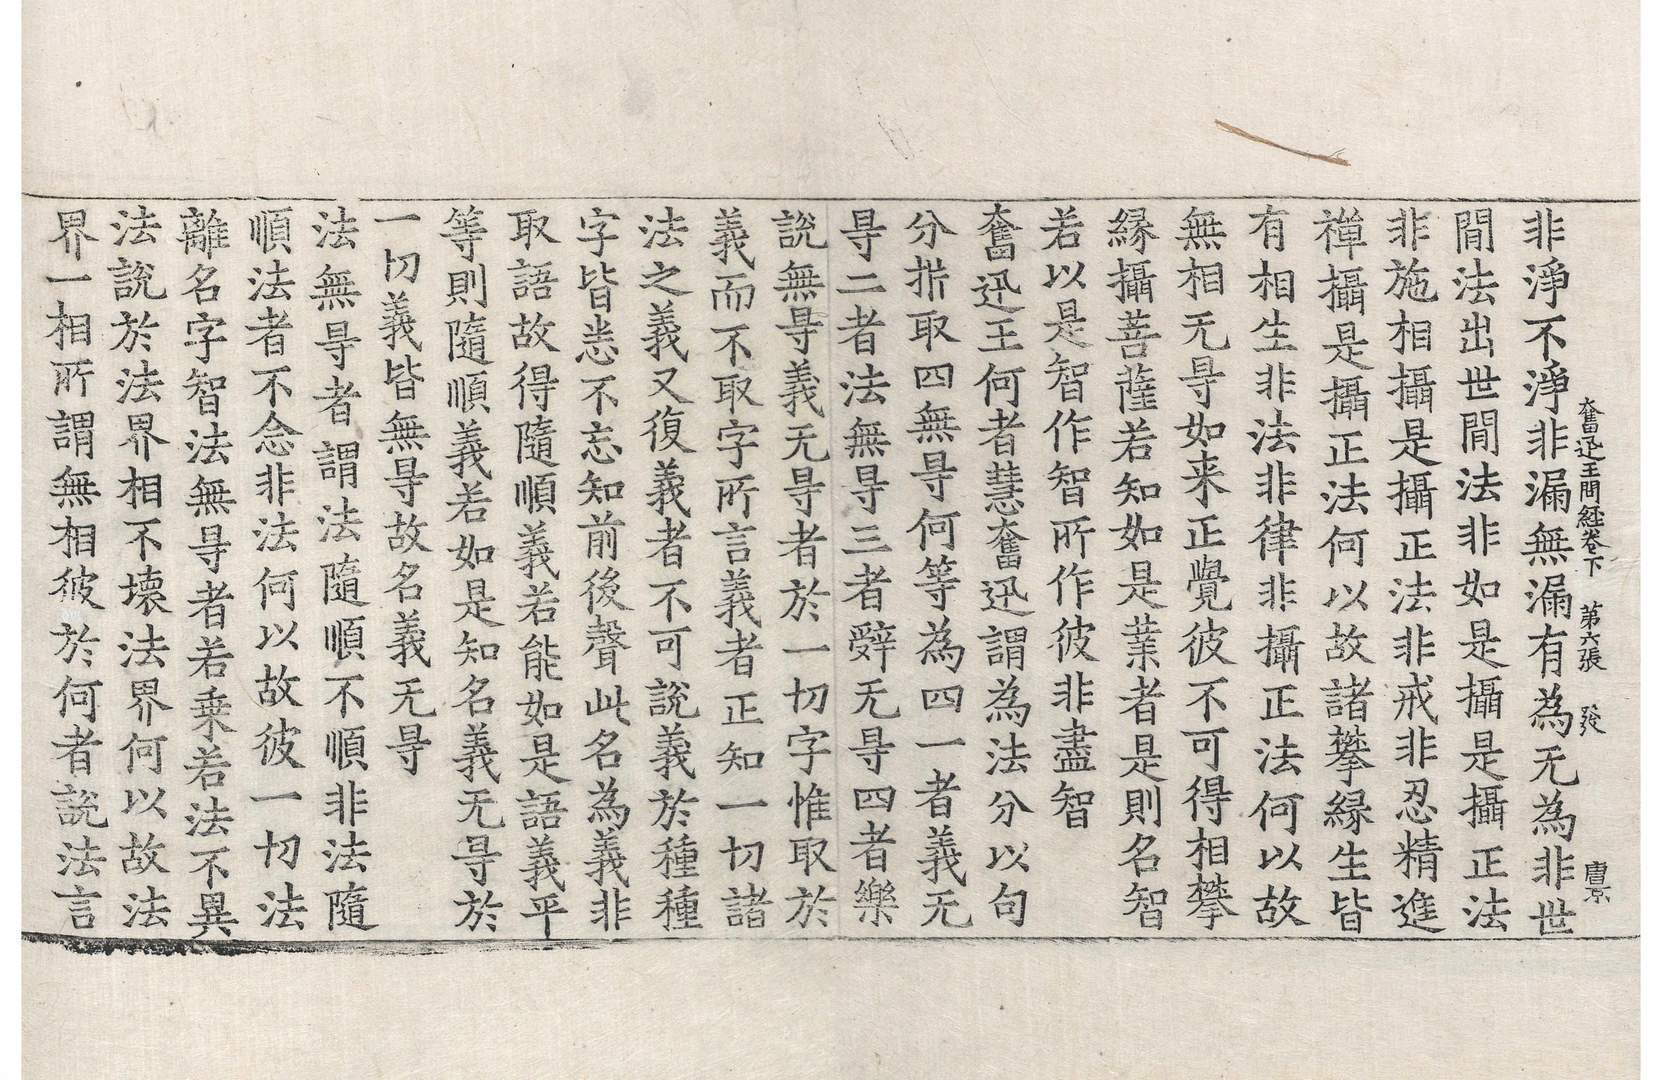 奮迅王問経卷下　第六張　發　唐京
非淨不淨非漏無漏有為无為非世
間法出世間法非如是攝是攝正法
非施相攝是攝正法非戒非忍精進
禪攝是攝正法何以故諸攀緣生皆
有相生非法非律非攝正法何以故
無相无㝵如来正覺彼不可得相攀
緣攝菩薩若知如是業者是則名智
若以是智作智所作彼非盡智
奮迅王何者慧奮迅謂為法分以句
分指取四無㝵何等為四一者義无
㝵二者法無㝵三者辝无㝵四者樂
說無㝵義无㝵者於一切字惟取於
義而不取字所言義者正知一切諸
法之義又復義者不可說義於種種
字皆悉不忘知前後聲此名為義非
取語故得隨順義若能如是語義平
等則隨順義若如是知名義无㝵於
一切義皆無㝵故名義无㝵
法無㝵者謂法隨順不順非法隨
順法者不念非法何以故彼一切法
離名字智法無㝵者若乗若法不異
法說於法界相不壊法界何以故法
界一相所謂無相彼於何者說法言